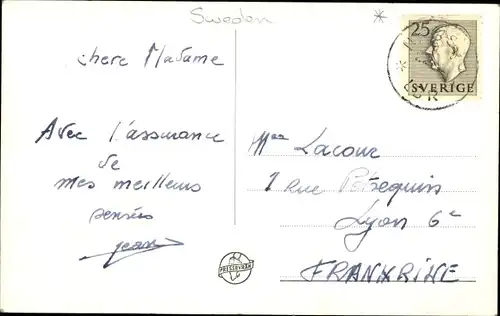 Sweden
chere Madame
Avec l'assurance
de
mes meilleures
pensées
Jean
25
SVERIGE
Mme Lacour
1 Rue
Lyon 6e
FRANKRIKE
PRESSBYRÅN